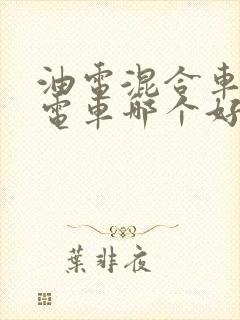 油電混合車
電車哪个好
葉非夜